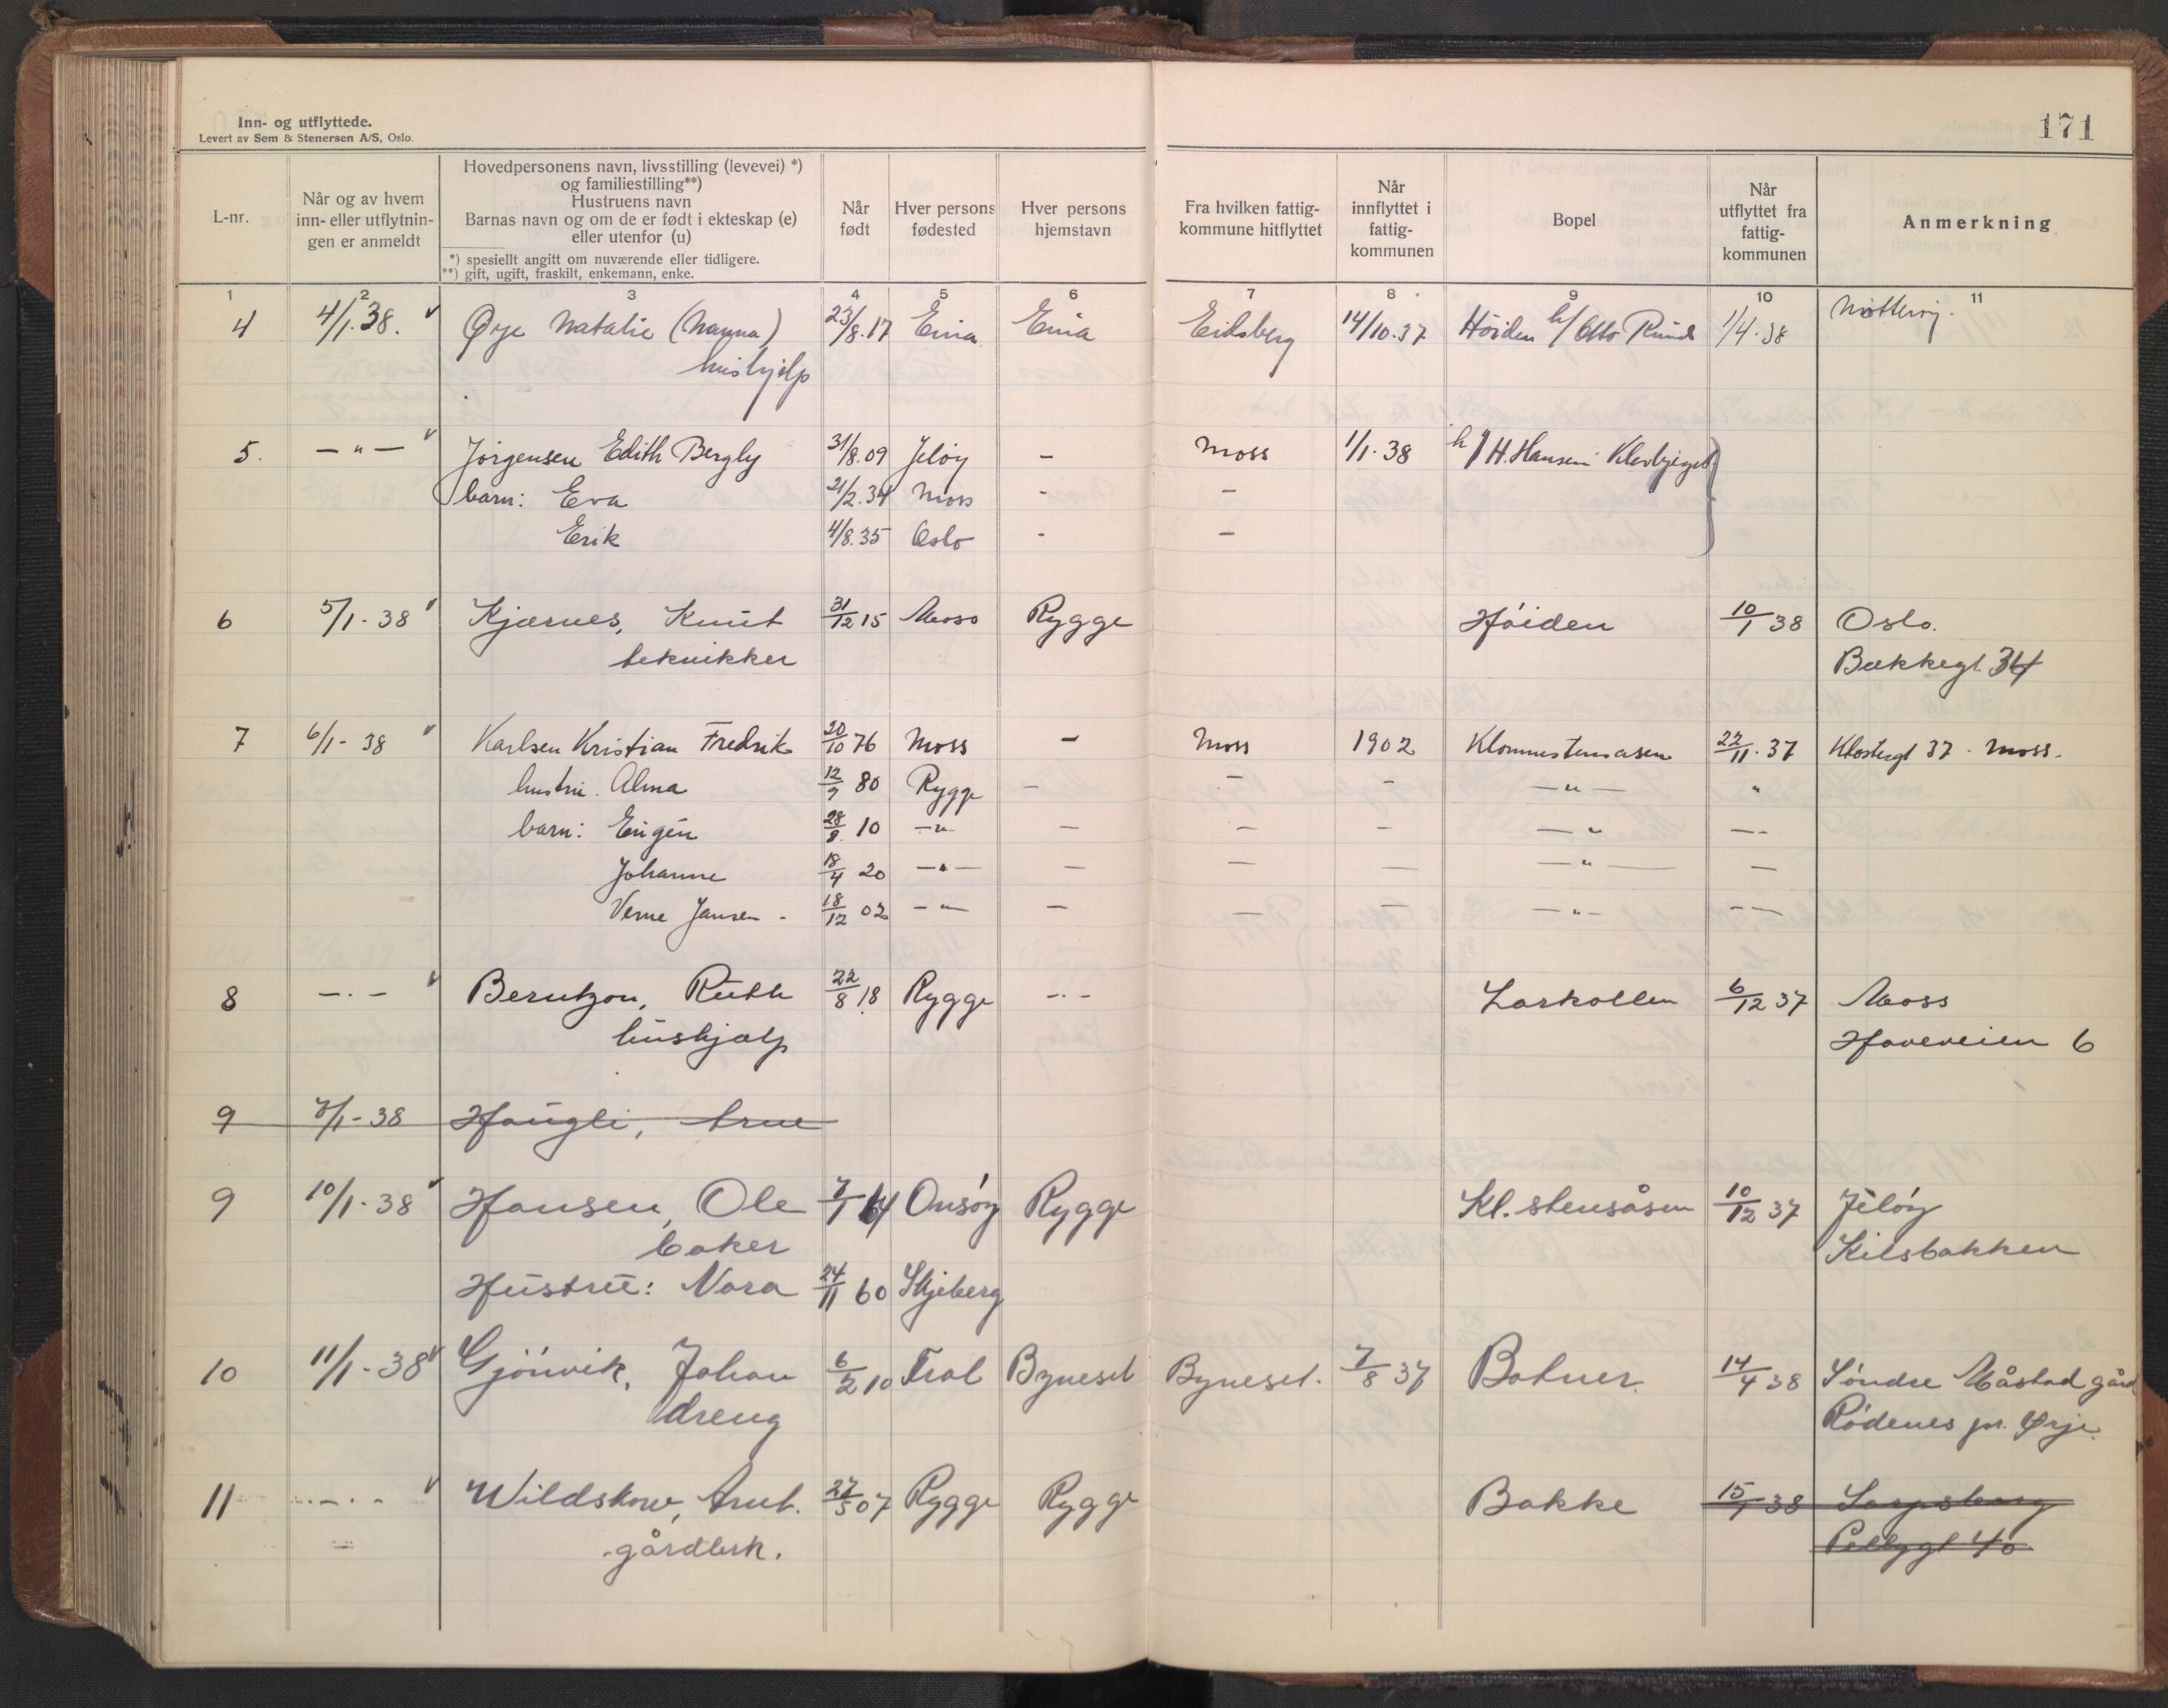 Inn- og utflyttede.
Levert av Sem & Stenersen A/S, Oslo.
171
L-nr.
Når og av hvem
inn- eller utflytnin-
gen er anmeldt
Hovedpersonens navn, livsstilling (levevei) *)
og familiestilling**)
Hustruens navn
Barnas navn og om de er født i ekteskap (e)
eller utenfor (u)
*) spesiellt angitt om nuværende eller tidligere.
**) gift, ugift, fraskilt, enkemann, enke.
Når
født
Hver persons
fødested
Hver persons
hjemstavn
Fra hvilken fattig-
kommune hitflyttet
Når
innflyttet i
fattig-
kommunen
Bopel
Når
utflyttet fra
fattig-
kommunen
Anmerkning
1 2 3 4 5 6 7 8 9 10 11
4 4/1.38. Øye Natalie (Nanna) 23/8.17 Eina Eina Eidsberg 14/10.37 Höiden h/ Otto Rund 1/4.38
hushjelp
5. -"- Jörgensen Edith Bergly 31/8.09 Jelöy - Moss 1/1.38 h/ H. Hansen
barn: Eva 21/2.34 Moss - -
Erik 4/8.35 Oslo - -
6 5/1-38 Kjærnes, Knut 31/12 15 Moss Rygge Höiden 10/1 38 Oslo.
teknikker Bakkegt. 34
7 6/1-38 Karlsen Kristian Fredrik 20/10 76 Moss - Moss 1902 Klommestensåsen 22/11.37 Klostergt 37. Moss.
hustru. Alma 12/9 80 Rygge - - - -"- "
barn: Eugén 28/8. 10 -"- - - - -"- --
Johanne 18/4 20 -"- - - - -"- -
Verne Jansen - 18/12 02 -"- - - - -"- --
8 -.- Berntzon, Ruth 22/8.18 Rygge -.- Larkollen 6/12 37 Moss
hushjælp Haveveien 6
9 7/1-38 Haugli, Arne
9 10/1-38 Hansen, Ole 7/1 64 Onsöy Rygge Kl.stensåsen 10/12 37 Jelöy
baker Kilsbakken
Hustru: Nora 24/11 60 Skjeberg
10 11/1-38 Gjönvik, Johan 6/2 10 Byneset Byneset. 7/8 37 Botner. 14/4 38 Söndre Måstad gård
dreng Rödenes pr. Ørje.
11 -.- Wildskow, Arnt. 27/5 07 Rygge Rygge Bakke 15/1 38 Sarpsborg
gårdbrk. 40